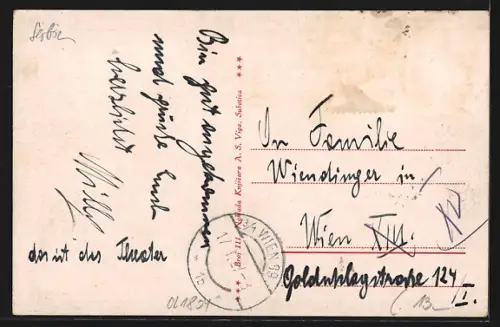 Serbien
Bin gut angekommen
und grüße Euch
herzlichst
Willy
das ist das Theater
Broj III. Naklada Knjižara A. S. Vigz. Subotica
An Familie
Wiendinger in
Wien XIII.
IV
Goldschlagstraße 124
I.
13
WIEN
OL1851